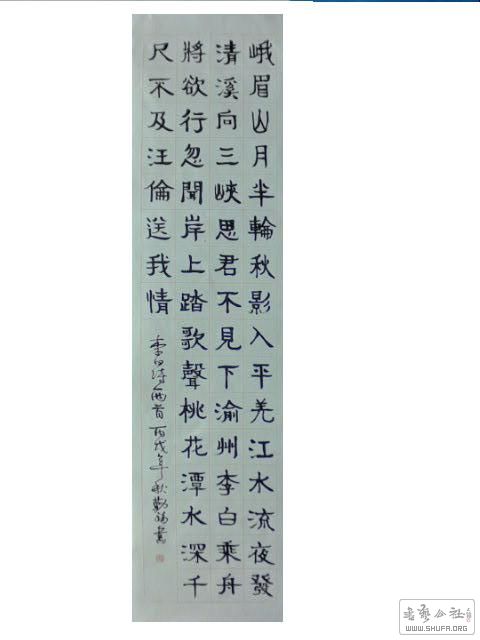 峨眉山月半輪秋影入平羌江水流夜發
清溪向三峽思君不見下渝州李白乘舟
將欲行忽聞岸上踏歌聲桃花潭水深千
尺不及汪倫送我情
李白诗二首 丙戌年秋 書
书艺公社
WWW.SHUFA.ORG